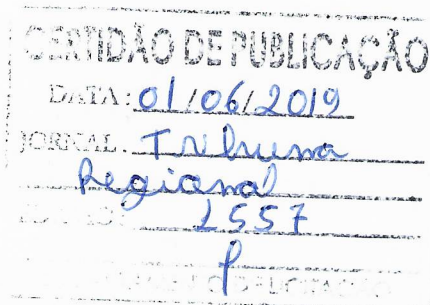 CERTIDÃO DE PUBLICAÇÃO
DATA: 01/06/2019
JORNAL: Tribuna
Regional
1557